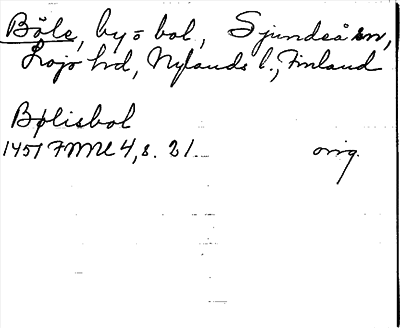 Böle, by = bol, Sjundeå sn,
Lojo hd, Nylands l., Finland
Bølisbol
1451 FMU 4, s. 21. orig.